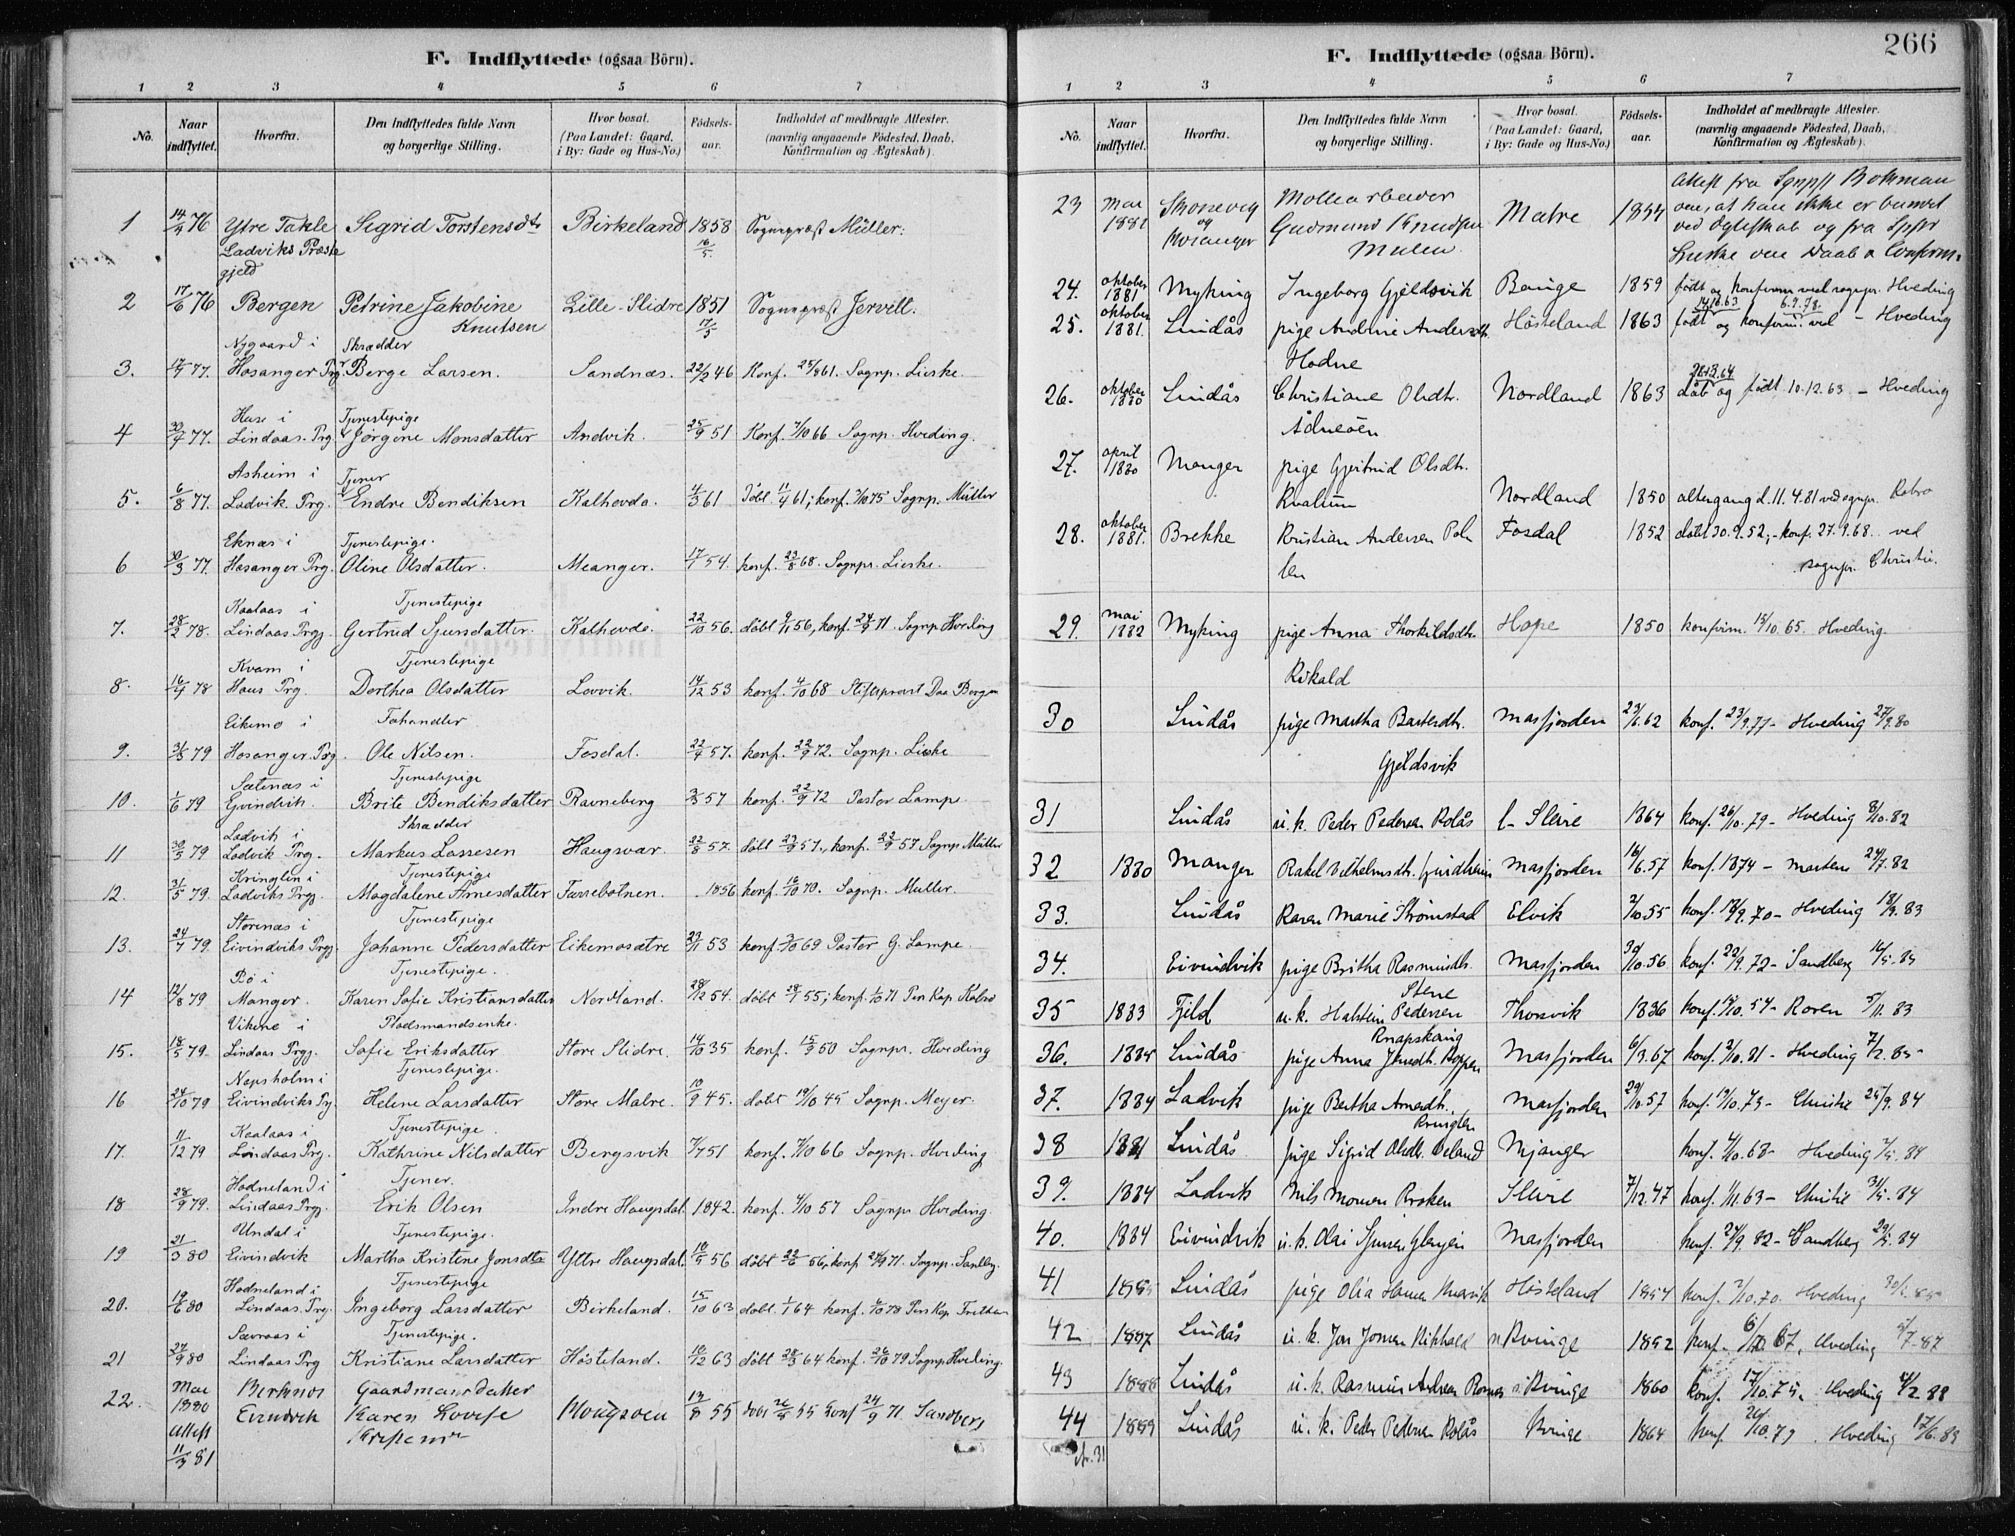 F. Indflyttede (ogsaa Börn).
1 2 3 4 5 6 7
No. Naar indflyttet. Hvorfra. Den Indflyttedes fulde Navn og borgerlige Stilling. Hvor bosat. (Paa Landet: Gaard, i By: Gade og Hus-No.) Fødsels-aar. Indholdet af medbragte Attester. (navnlig angaaende Fødested, Daab, Konfirmation og Ægteskab).
1 14/4 76 Ytre Takle Sigrid Torstensdtr Birkeland 1858 Sognepræst Müller.
Ladviks Præste 16/5
gjeld
2 17/6 76 Bergen Petrine Jakobine Lille-Slidre 1851 Sognepræst Jervell.
Knutsen 17/3
Nygaard i Skrædder
3. Hosanger Prg. Berge Larsen. Sandnæs. 22/2 46 Konf. 25/8 61. Sognp. Lieske
Huse i Tjenestepige
4 30/4 77. Lindaas Prg. Jørgine Monsdatter Andvik. 25/9 51 Konf. 7/10 66 Sognp. Hveding.
Asheim i Tjener
5. 6/8 77. Ladvik Prg. Endre Bendiksen Kalhovda. 4/3 61 Döbt 11/4 61; konf. 3/10 75 Sognp. Müller
Eknæs i Tjenestepige.
6 30/3 77. Hosanger Prg. Oline Olsdatter. Meanger. 17/7 54. konf. 23/8 68. Sognpr. Lieske.
Kaalaas i Tjenestepige
7. 28/2 78. Lindaas Prgj. Gertrud Sjursdatter. Kalhovda. 22/10 56. döbt 9/11 56, konf. 24/9 71. Sognp Hveding
Kvam i Tjenestepige
8. 16/4 78 Haus Prg. Dorthea Olsdatter Lovvik. 14/12 53 konf. 4/10 68 Stiftsprovst Daa Bergen
Eikemo i
9. 31/3 79 Hosanger Prg. Ole Nilsen. Fosdal. 22/4 57. konf. 22/9 72. Sognp. Lieske
Sætenæs i Tjenestepige
10. 1/6 79 Ejvindvik. Brite Bendiksdatter Ravneberg 3/3 57 konf. 22/9 72 Pastor Lampe
Ladvik i Skrædder
11 30/5 79 Ladvik Prg. Markus Lassesen Haugsvær. 22/8 57. döbt 23/9 57., konf. 22/9 57 Sognp Müller
Kringlen i Tjenestepige
12. 31/5 79. Ladviks Prgj. Magdalene Arnesdatter Furrebotnen. 1856 konf. 16/10 70. Sognp. Muller.
Storenæs i Tjenestepige
13. 24/7 79. Eivindviks Prgj. Johanne Pedersdatter Eikemosætre 23/11 53 konf. 3/10 69 Pastor G. Lampe.
Bö i Tjenestepige.
14 12/8 79 Manger. Karen Sofie Kristiansdatter Nordland. 28/12 54. döbt 28/1 55; konf. 1/10 71 Pers Kap Kobro
Vikene i Pladsmandsenke.
15. 18/5 79. Lindaas Prgj. Sofie Eriksdatter Store Slidre. 14/10 35 konf. 15/9 50 Sognpr. Hveding
Napsholm i Tjenestepige.
16 24/10 79 Eivindviks Prg. Helene Larsdatter Store Matre. 10/9 45. döbt 19/10 45 Sognp. Meyer.
Kaalaas i Tjenestepige.
17. 11/12 79 Lindaas Prg. Kathrine Nilsdatter Bergsvik 7/7 51 konf. 7/10 66 Sognp. Hveding
Hodneland i Tjener.
18 28/9 79. Lindaas Prgj. Erik Olsen Indre Haugsdal 1842. konf. 4/10 57 Sognpr Hveding.
Undal i Tjenestepige.
19 21/3 80 Eivindvik Martha Kristine Jonsdtr Yttre Haugsdal. 10/5 56 döbt 22/6 56, konf 24/9 71. Sognp. Sandberg.
Hodneland i Tjenestepige
20. 19/6 80 Lindaas Prg. Ingeborg Larsdatter Birkeland. 15/10 63 döbt 1/1 64 konf. 6/10 78 Pers Kap
Sævraas i Tjenestepige.
21 27/9 80 Lindaas Prg Kristiane Larsdatter Høsteland. 10/12 63 döbt 28/3 64 konf. 26/10 79 Sognp Hveding.
22. Mai Birknes Gaardmansdatter
1880 Eivindvik Karen Lovise 13/8 55 55 Konf 24/9 71. Sandberg
Attest
11/3 81
266
F. Indflyttede (ogsaa Börn).
1 2 3 4 5 6 7
No. Naar indflyttet. Hvorfra. Den Indflyttedes fulde Navn og borgerlige Stilling. Hvor bosat. (Paa Landet: Gaard, i By: Gade og Hus-No.) Fødsels-aar. Indholdet af medbragte Attester. (navnlig angaaende Fødested, Daab, Konfirmation og Ægteskab).
Attest fra Sgnpst
23 Mai Skonevig Møllearbeider om, at han ikke er bunden
1882 og Gudmund Knudsen Matre 1854 ved Ægteskab og fra Sppr
Hosanger Mulen Lieske om Daab & Confirm.
24. oktober 1881 Myking Ingeborg Gjeldsvik Bauge 1859 født og konfirm. ved sognpr. Hveding
14.10.63 6.9.78.
25. oktober 1881. Lindås pige Andersdtr. Høsteland 1863 født og konfirm. ved - Hveding
Hodne
26. oktober 1880 Lindås Christiane Olsdtr. Nordland 1863 dåb og født 10.12.63 - Hveding
Ådneøen
27. april 1880 Manger pige Gjertrud Olsdtr.
Kvalum Nordland 1850 altergang d. 11.4.81 ved sognpr. Kobro
28. oktober 1881. Brekke Kristian Andersen Fosdal 1852 døbt 30.9.52, - konf. 27.9.68 ved
sognpr. Christie.
29. mai 1882 Myking pige Anna Thorkildsdtr. Hope 1850 konfirm. 15/10.65. Hveding
Rikald
30 Lindås pige Martha Masfjorden 23/6.62 konf. 23/9.77 - Hveding 27/9.80
Gjeldsvik
31 Lindås u.k. Peder Pedersen Kolås l- Sleire 1864 konf. 26/10.79 - Hveding 8/10.82
32 1880 Manger Rakel Vilhelmsdtr. Masfjorden 16/6.57 konf. 1874 - 24/7.82
33. Lindås Karen Marie Strømstad Elvik 2/10.55 konf. 18/9.70 - Hveding 18/9.83
34. Eivindvik pige Britha Rasmusdtr. Masfjorden 30/10.56 konf. 22/9.72 - Sandberg
Stene
35 1883 Fjeld u.k. Halstein Pedersen Thorsvik 1836 konf. 15/10.54 - 5/11.83
Knapskaug
36. Lindås pige Anna Masfjorden 6/3.67 konf. 2/10.81 - Hveding
37. 1884 Ladvik pige Bertha Arnesdtr. Masfjorden 29/10.57 konf. Christie 25/9.84
Kringlen
38 Lindås pige Sigrid Olsdtr. Mjanger konf. 4/10.68 - Hveding
39. 1884 Ladvik Nils Monsen Kroken Sleire 7/12.47 konf. 1/11.63 - Christie 31/5.84
40. 1884 Eivindvik u.k. Olai Masfjorden konf. 24/9.82 - Sandberg
41 Lindås pige Olia Hansen Høsteland 1854 konf. 2/10.70. Hveding
42 1887 Lindås u.k. Jon Jonsen Kvinge 1852 Konf. Hveding
43 1888 Lindås u.k. Rasmus Andreas Kvinge 1860 konf. 17/10.75. Hveding
44 1889 Lindås u.k. Peder Pedersen Kolås Kvinge 1864 konf. 26/10.79. Hveding 17/6.89